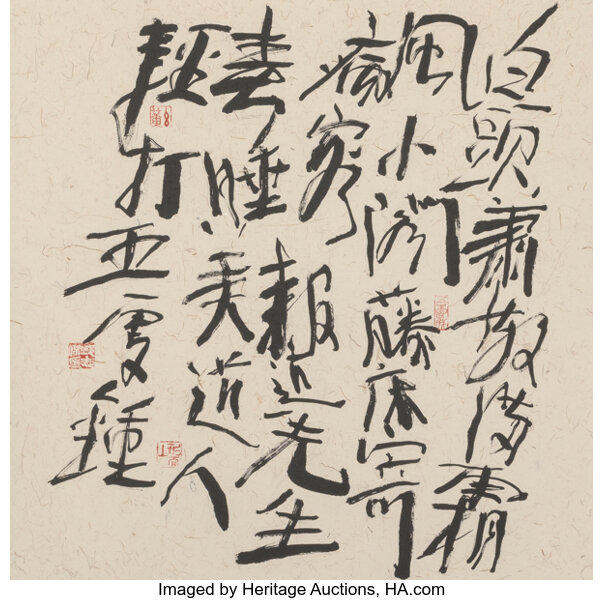 白頭蕭散滿霜
風小閣藤床寄
病容報道先生
春睡美道人
輕打五更鍾
Imaged by Heritage Auctions, HA.com